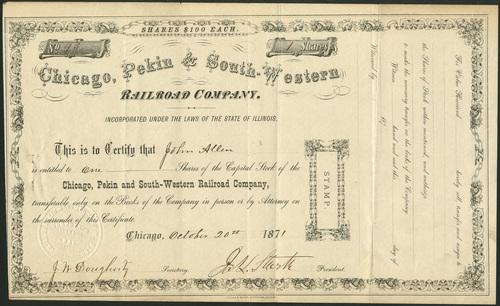 SHARES $100 EACH.
No. 
1 Shares
Chicago, Pekin & South-Western
RAILROAD COMPANY.
INCORPORATED UNDER THE LAWS OF THE STATE OF ILLINOIS.
This is to Certify that John Allen
is entitled to One Shares of the Capital Stock of the
Chicago, Pekin and South-Western Railroad Company,
transferable only on the Books of the Company in person or by Attorney on
the surrender of this Certificate.
Chicago, October 20th 1871
J W Dougherty Secretary. President.
STAMP.
For Value Received hereby sell, transfer and assign to
the Shares of Stock within mentioned, and authorize
to make the necessary transfer on the books of the Company
Witness hand and seal this day of
187
Witnessed by